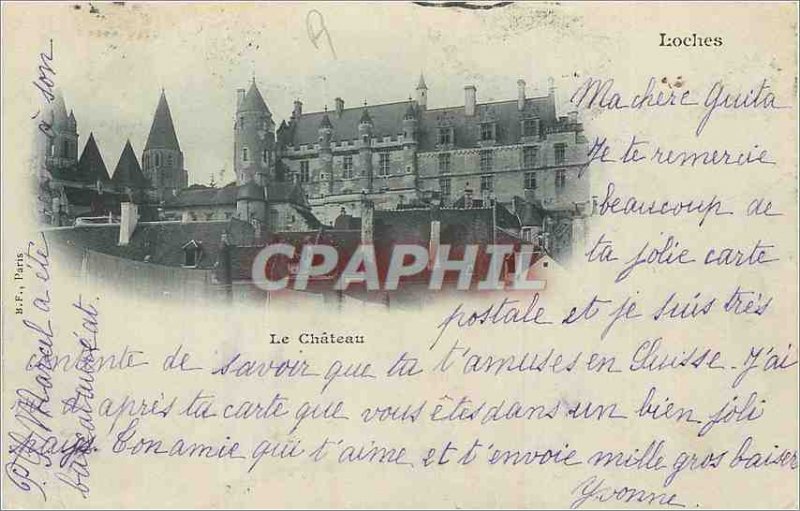 Loches
Ma chère Guita
Je te remercie
beaucoup de
ta jolie carte
postale et je suis très
contente de savoir que tu t'amuses en Suisse. J'ai
d'après ta carte que vous êtes dans un bien joli
pays. Ton amie qui t'aime et t'envoie mille gros baiser
Yvonne.
Le Château
B.F., Paris
CPAPHIL
P.S. Marcel a été à son
baccalauréat.